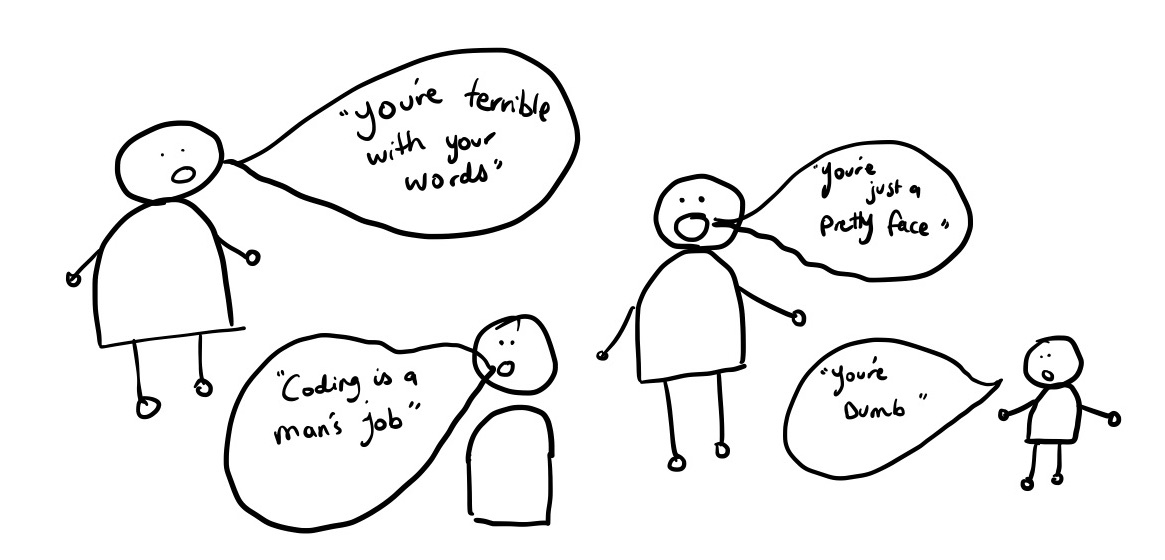 "you're terrible
with your
words"
"you're
just a
pretty face"
"Coding is a
man's job"
"you're
Dumb"